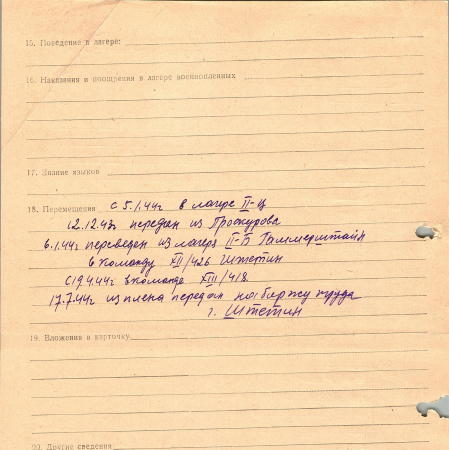 15. Поведение в лагере:
16. Наказания и поощрения в лагере военнопленных
17. Знание языков
18. Перемещения с 5.1.44г в лагере II-Ц
12.12.43г передан из Проскурова
6.1.44г переведен из лагеря II-Б Гаммерштайн
в команду XII/426 Штетин
с 19.4.44г в команде XIII/418
17.7.44г из плена передан на биржу труда
г. Штетин
19. Вложения в карточку
20. Другие сведения